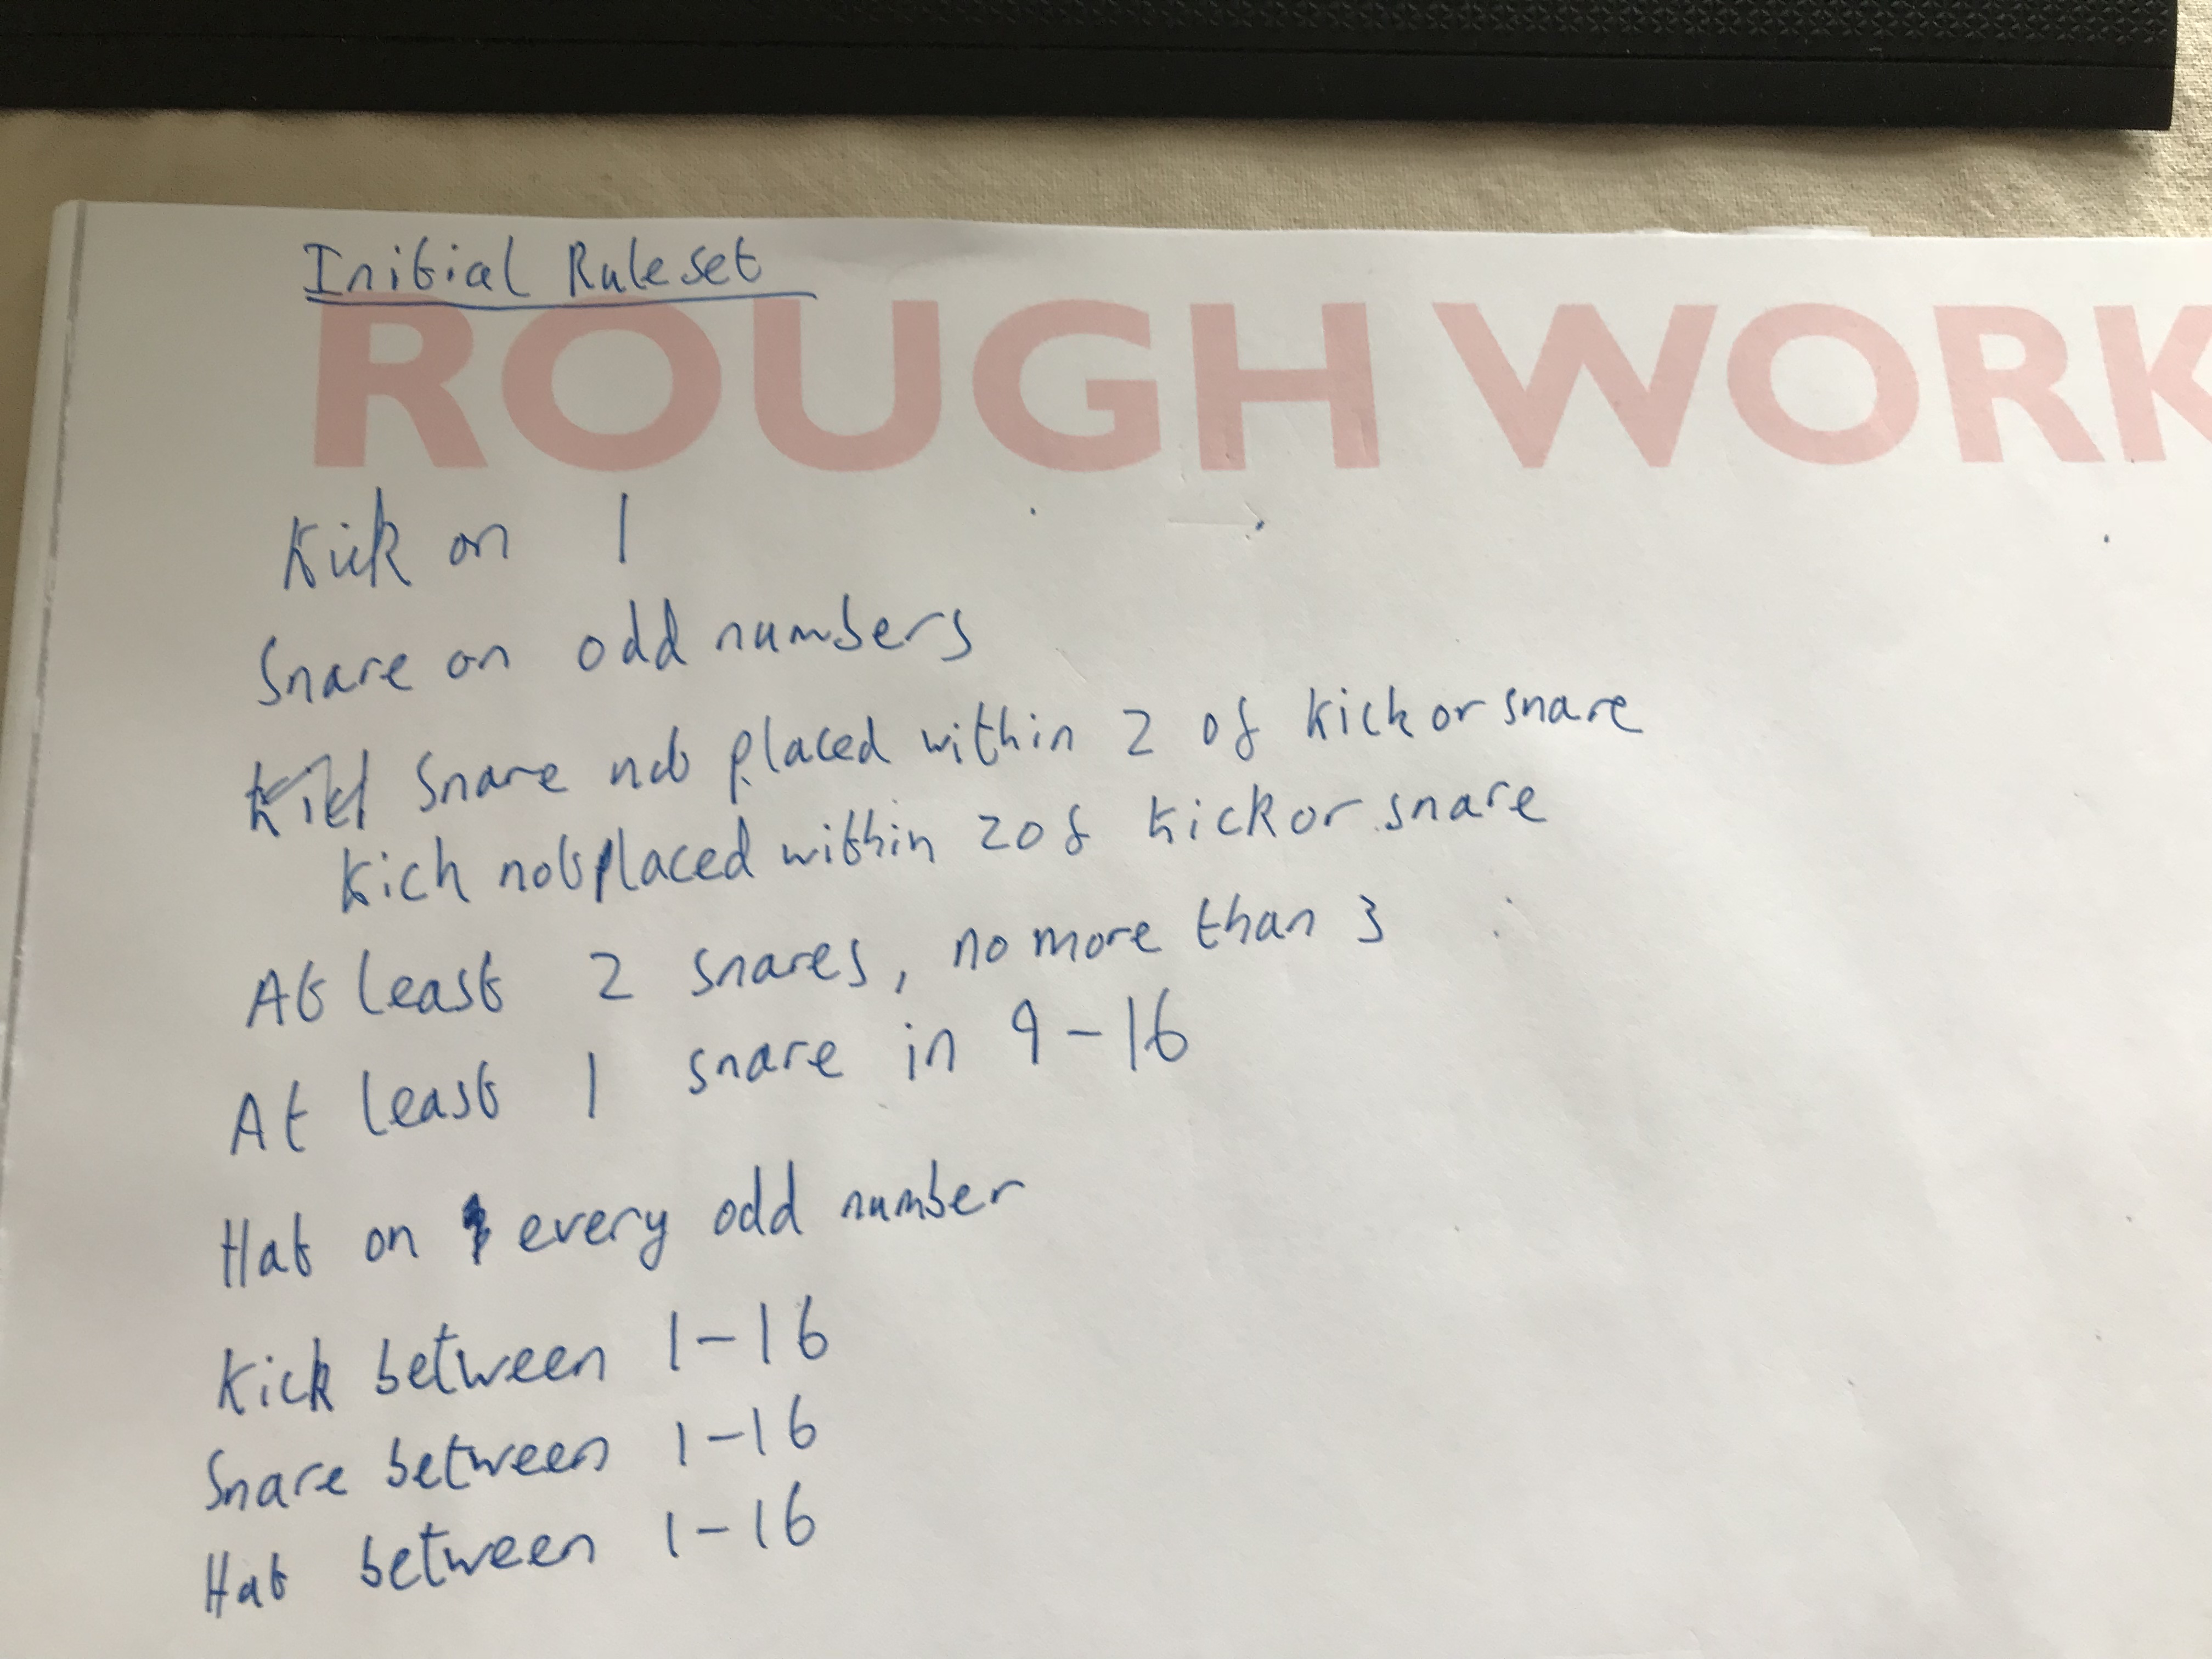 Initial Ruleset
ROUGH WORK
Kick on 1
Snare on odd numbers
Snare not placed within 2 of kick or snare
Kick not placed within 2 of kick or snare
At least 2 snares, no more than 3
At least 1 snare in 9-16
Hat on every odd number
Kick between 1-16
Snare between 1-16
Hat between 1-16